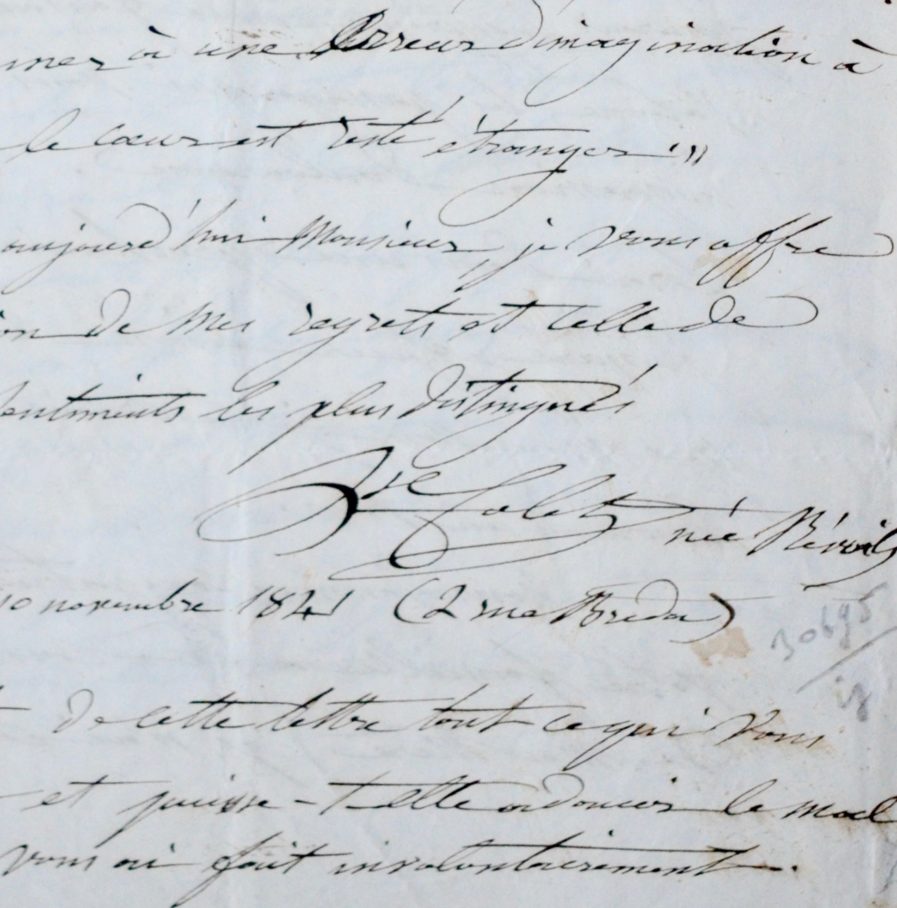 à une Erreur d'imagination à
le cœur est resté étranger "
aujourd'hui Monsieur, je vous offre
ion de mes regrets et celle de
sentiments les plus distingués
Colet née Révoil
10 novembre 1841 (2 rue Breda)
30695
de cette lettre tout ce qui vous
et puisse-t-elle adoucir le mal
vous ai fait involontairement.